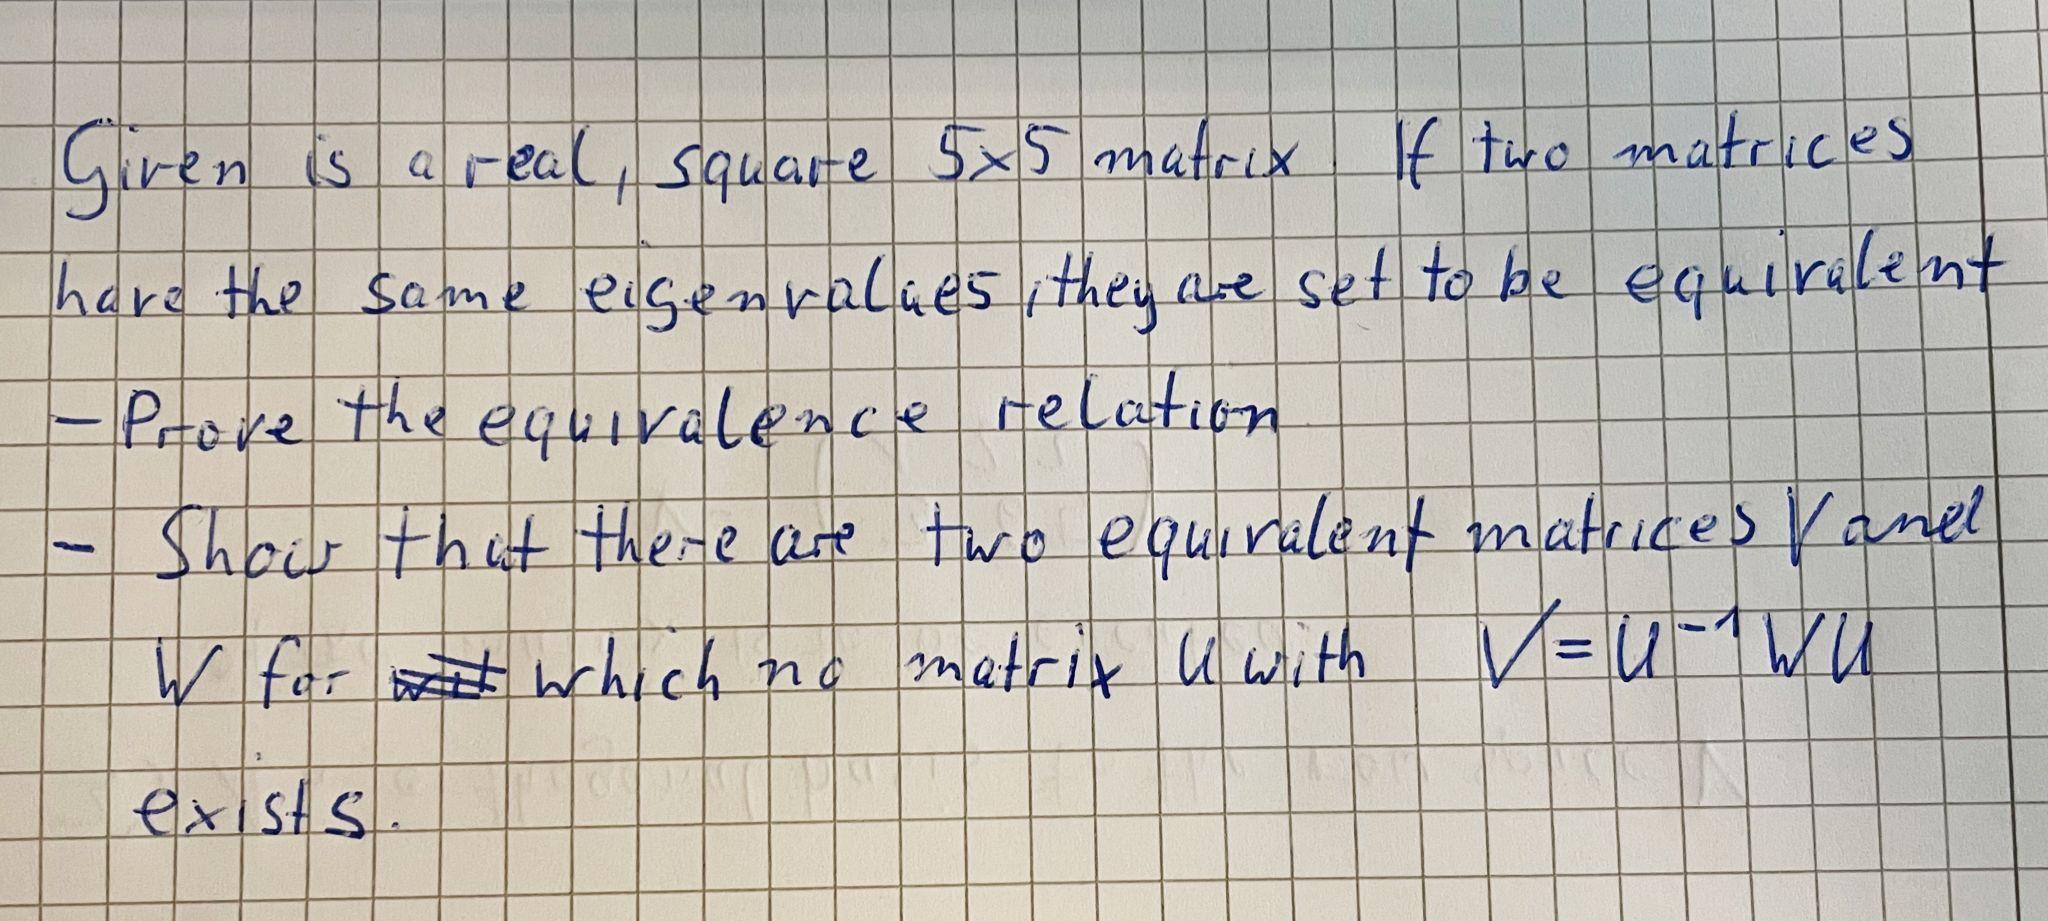 Given is a real, square 5x5 matrix. If two matrices
have the same eigenvalues, they are set to be equivalent
- Prove the equivalence relation
- Show that there are two equivalent matrices V and
W for which no matrix U with V = U⁻¹ W U
exists.